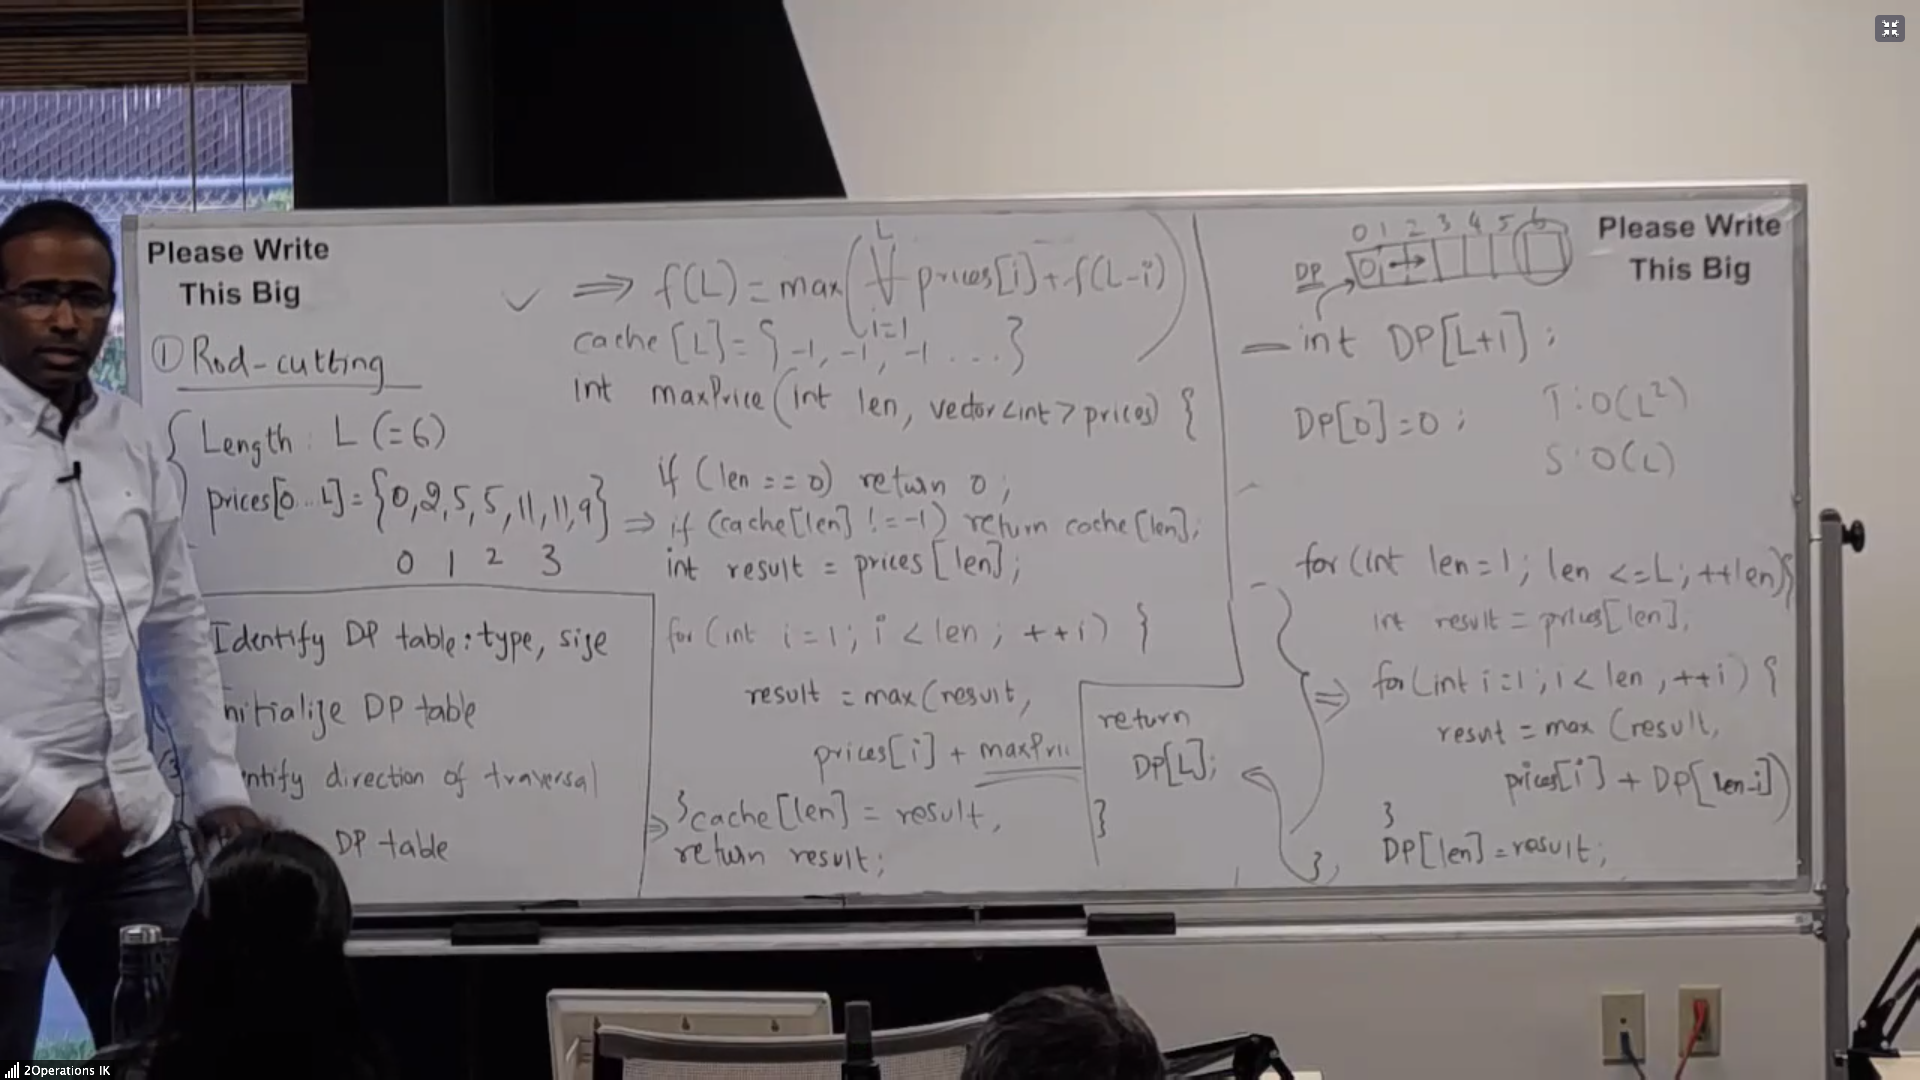 Please Write
This Big
① Rod-cutting
Length: L (=6)
prices[0...L] = {0,2,5,5,11,11,9}
0 1 2 3
Identify DP table: type, size
nitialize DP table
ntify direction of traversal
DP table
⇒ f(L) = max( ∀ prices[i] + f(L-i) )
L
i=1
cache[L] = {-1, -1, -1 ...}
int maxPrice(int len, vector<int> prices) {
if (len == 0) return 0;
⇒ if (cache[len] != -1) return cache[len];
int result = prices[len];
for (int i = 1; i < len; ++i) {
result = max(result,
prices[i] + maxPri
} cache[len] = result,
return result;
return
DP[L];
}
Please Write
This Big
0 1 2 3 4 5 6
DP 0
int DP[L+1];
DP[0] = 0;
T: O(L²)
S: O(L)
for (int len=1; len <= L; ++len) {
int result = prices[len];
for (int i=1; i < len, ++i) {
result = max (result,
prices[i] + DP[len-i])
}
DP[len] = result;
},
2Operations IK